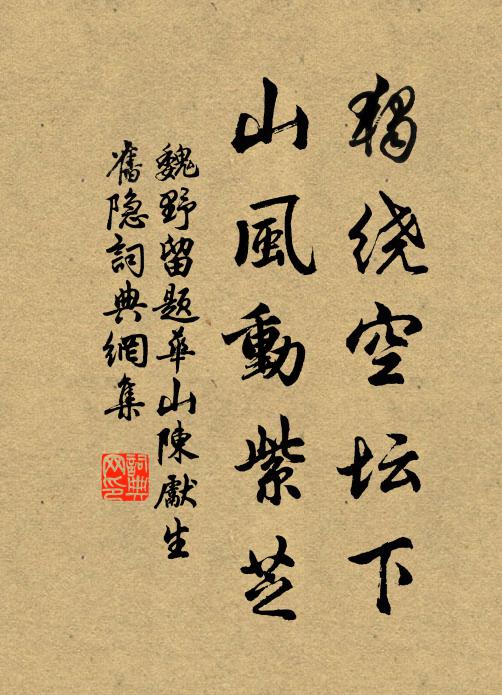 獨绕空坛下
山風動紫芝
魏野留题華山陳獻生
舊隐詞典網集
詞典网印